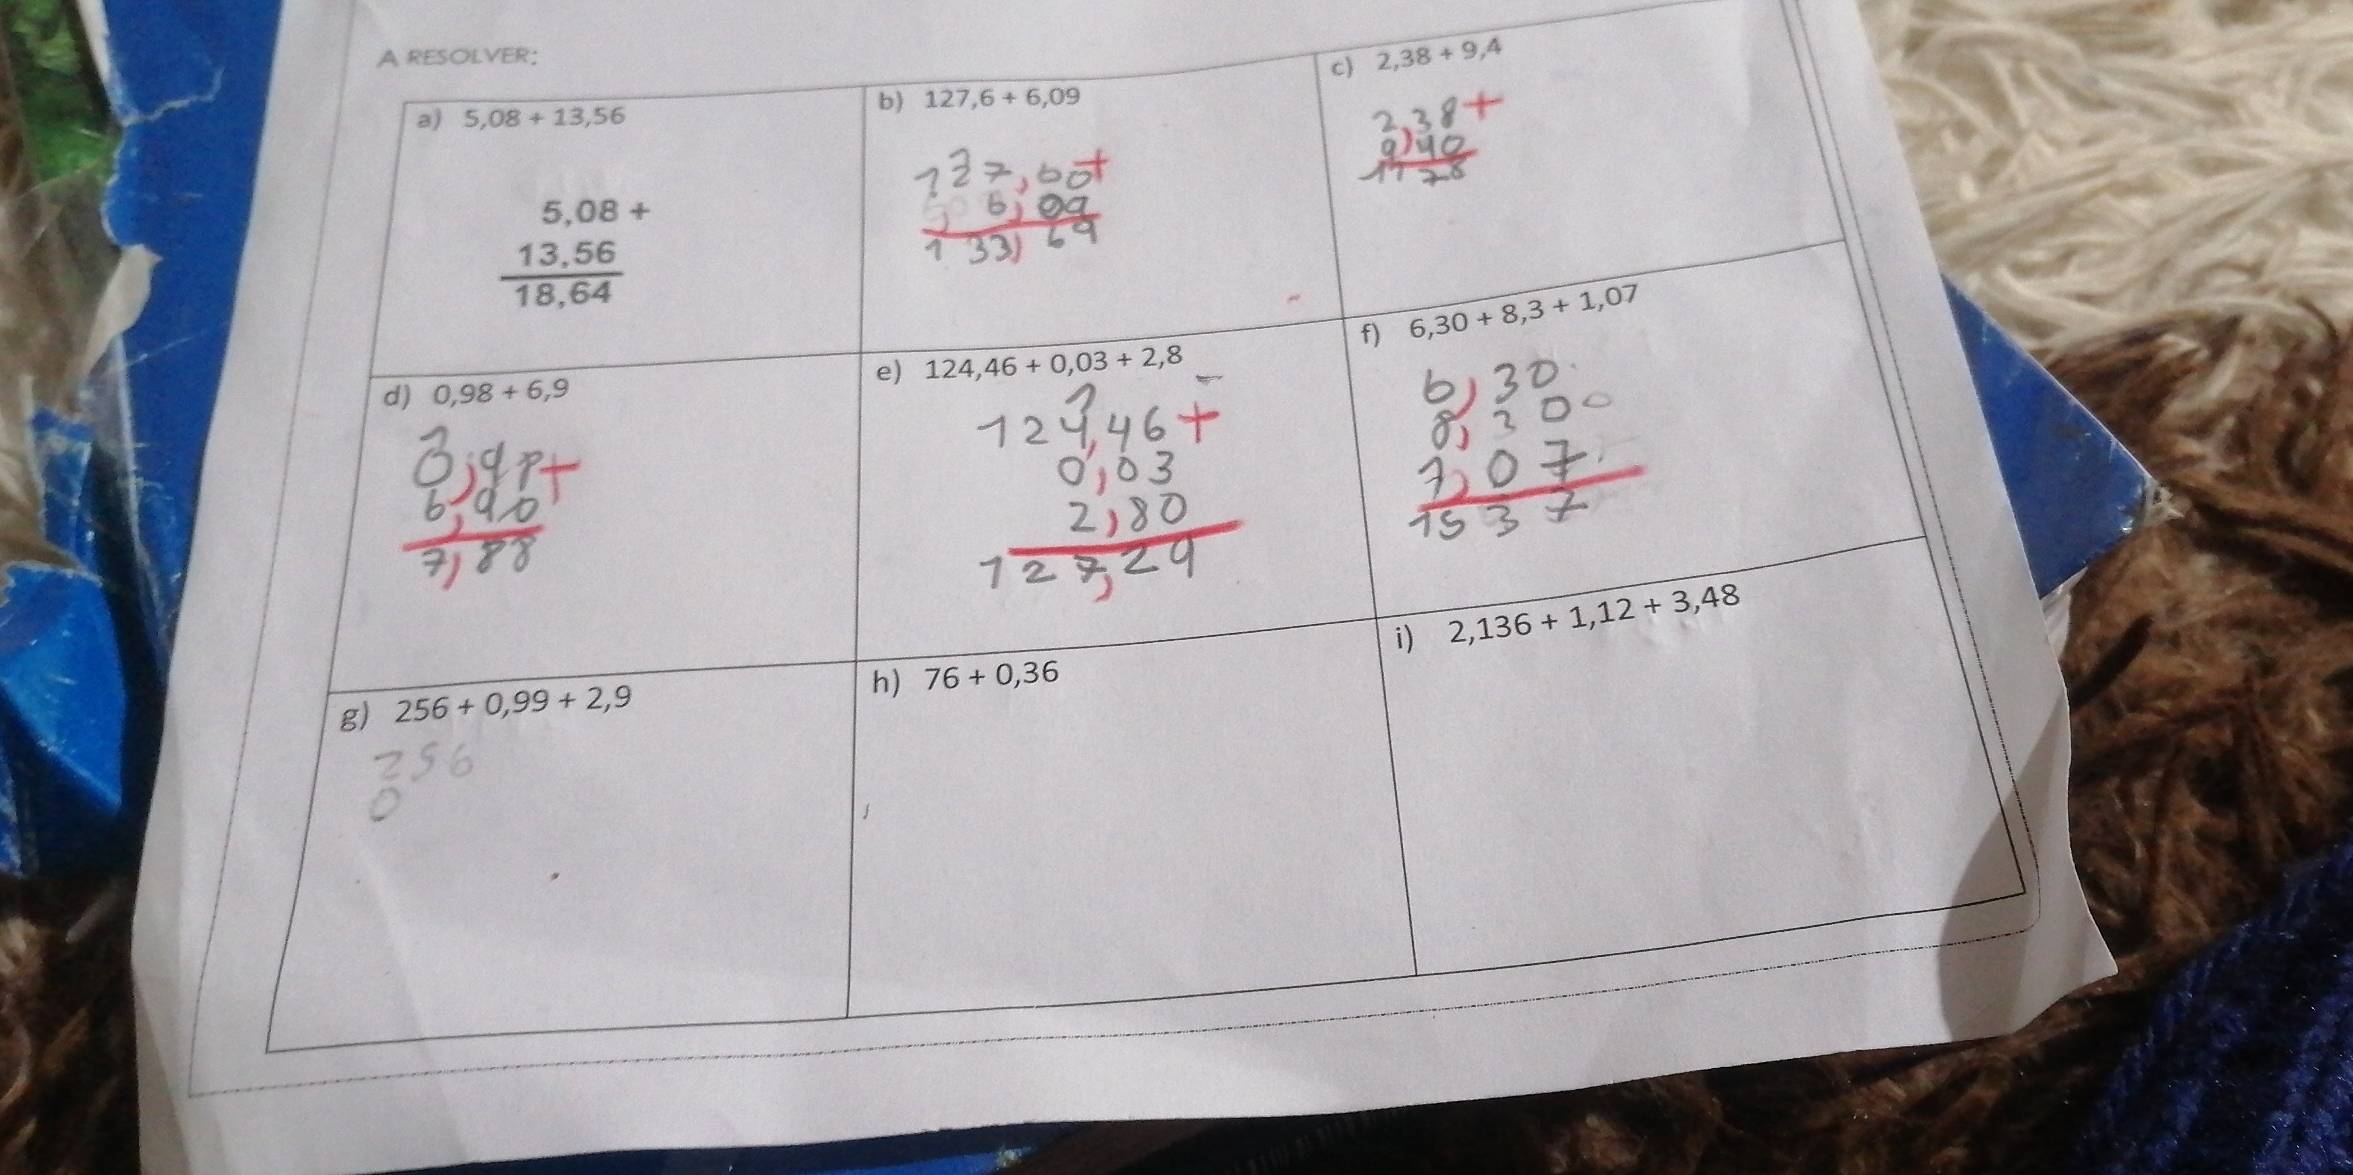 A RESOLVER:
a) 5,08 + 13,56
5,08 +
13,56
18,64
b) 127,6 + 6,09
127,60+
6,09
133,69
c) 2,38 + 9,4
2,38+
9,40
1178
d) 0,98 + 6,9
0,98+
6,90
7,88
e) 124,46 + 0,03 + 2,8
124,46+
0,03
2,80
127,29
f) 6,30 + 8,3 + 1,07
6,30
8,300
1,07
1537
g) 256 + 0,99 + 2,9
256
0
h) 76 + 0,36
i) 2,136 + 1,12 + 3,48